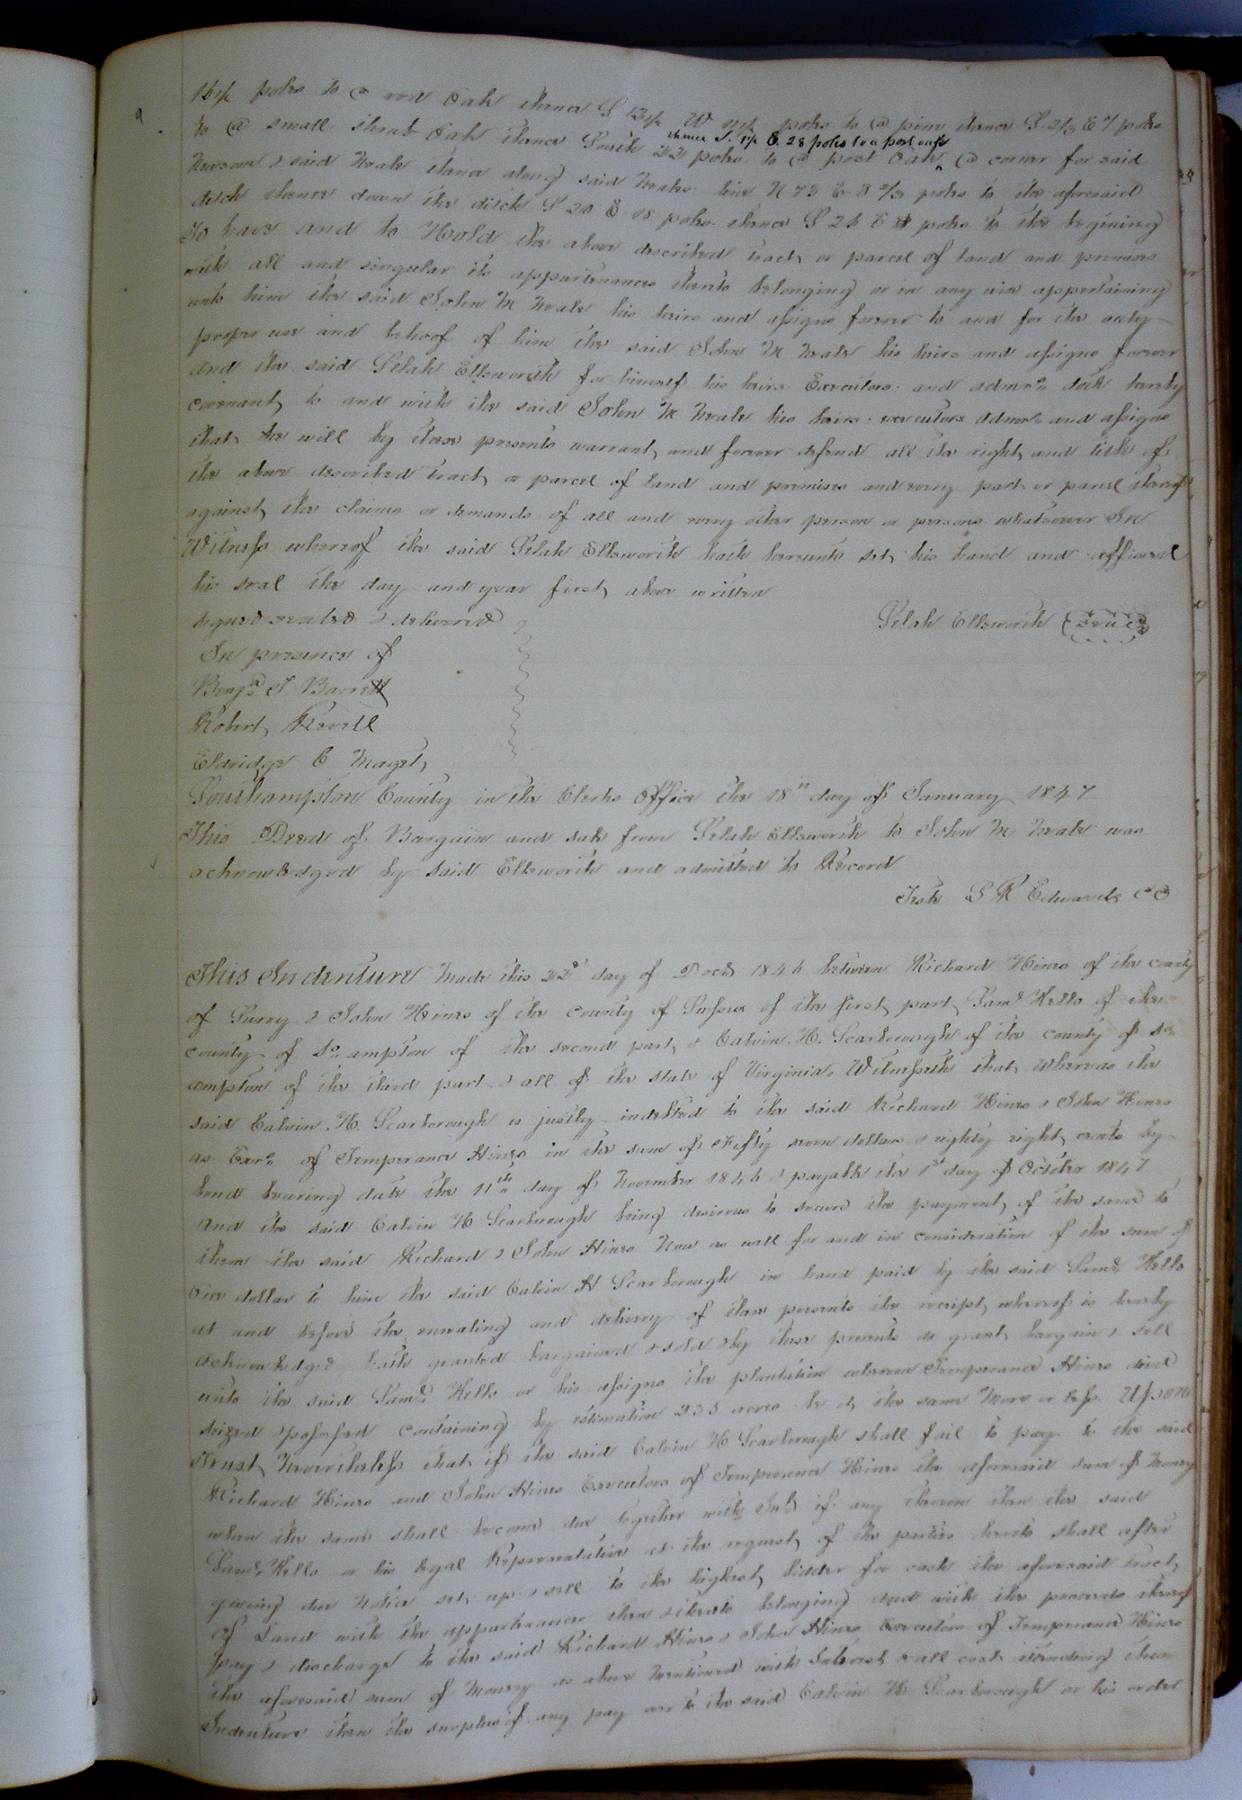 16½ poles to a red Oak thence S 13½ W 9½ poles to a pine thence S 2/3 E 7 poles
thence S. 1½ E. 28 poles to a post oak
to a small shrub Oak thence South 22 poles to a post Oak ^ a corner for said
Newsom & said Neale thence along said Neales line N 73 E 8 2/3 poles to the aforesaid
ditch thence down the ditch S 20 E 18 poles thence S 24 E poles to the begining
To have and to Hold the above described tract or parcel of land and premises
with all and singular its appurtenances thereto belonging or in any wise appertaining
unto him the said John M Neale his heirs and assigns forever to and for the only
proper use and behoof of him the said John M Neale his heirs and assigns forever
And the said Selah Ellsworth for himself his heirs Executors and admors doth hereby
covenant to and with the said John M Neale his heirs executors admors and assigns
that he will by these presents warrant and forever defend all the right and title of
the above described tract or parcel of land and premises and every part or parcel thereof
against the claims or demands of all and every other person or persons whatsoever In
Witness whereof the said Selah Ellsworth hath hereunto set his hand and affixed
his seal the day and year first above written
signed sealed & delivered Selah Ellsworth {Seal}
In presence of
Benja. J Barrett
Robert
Eldridge C Maget
Southampton County in the Clerks Office the 18th day of January 1847
This Deed of Bargain and sale from Selah Ellsworth to John M Neale was
acknowledged by said Ellsworth and admitted to Record
Teste L R Edwards CC
This Indenture Made this 22d day of Decr 1846 between Richard Hines of the county
of Surry & John Hines of the county of Sussex of the first part Saml. Kello of the
county of So. ampton of the second part & Calvin H. Scarborough of the county of So
ampton of the third part & all of the state of Virginia Witnesseth that whereas the
said Calvin H. Scarborough is justly indebted to the said Richard Hines & John Hines
as Exrs of Temperance Hines in the sum of Fifty seven dollars & eighty eight cents by
bond bearing date the 11th day of November 1846 & payable the 1st day of October 1847
And the said Calvin H Scarborough being desirous to secure the payment of the same to
them the said Richard & John Hines Now as well for and in consideration of the sum of
One dollar to him the said Calvin H Scarborough in hand paid by the said Saml. Kello
at and before the ensealing and delivery of these presents the receipt whereof is hereby
acknowledged hath granted bargained & sold & by these presents do grant bargain & sell
unto the said Saml. Kello or his assigns the plantation whereon Temperance Hines died
seized & possessed containing by estimation 235 acres be it the same More or less. Upon
Trust Nevertheless that if the said Calvin H Scarborough shall fail to pay to the said
Richard Hines and John Hines Executors of Temperance Hines the aforesaid sum of Money
when the same shall become due together with Int. if any thereon then the said
Saml. Kello or his legal Representative at the request of the parties hereto shall after
giving due Notice set up & sell to the highest bidder for cash the aforesaid tract
of Land with the appurtenances thereto belonging and with the proceeds thereof
pay & discharge to the said Richard Hines & John Hines Executors of Temperance Hines
the aforesaid sum of Money as above Mentioned with Interest & all cost attending this
Indenture then the surplus if any pay over to the said Calvin H Scarborough or his order